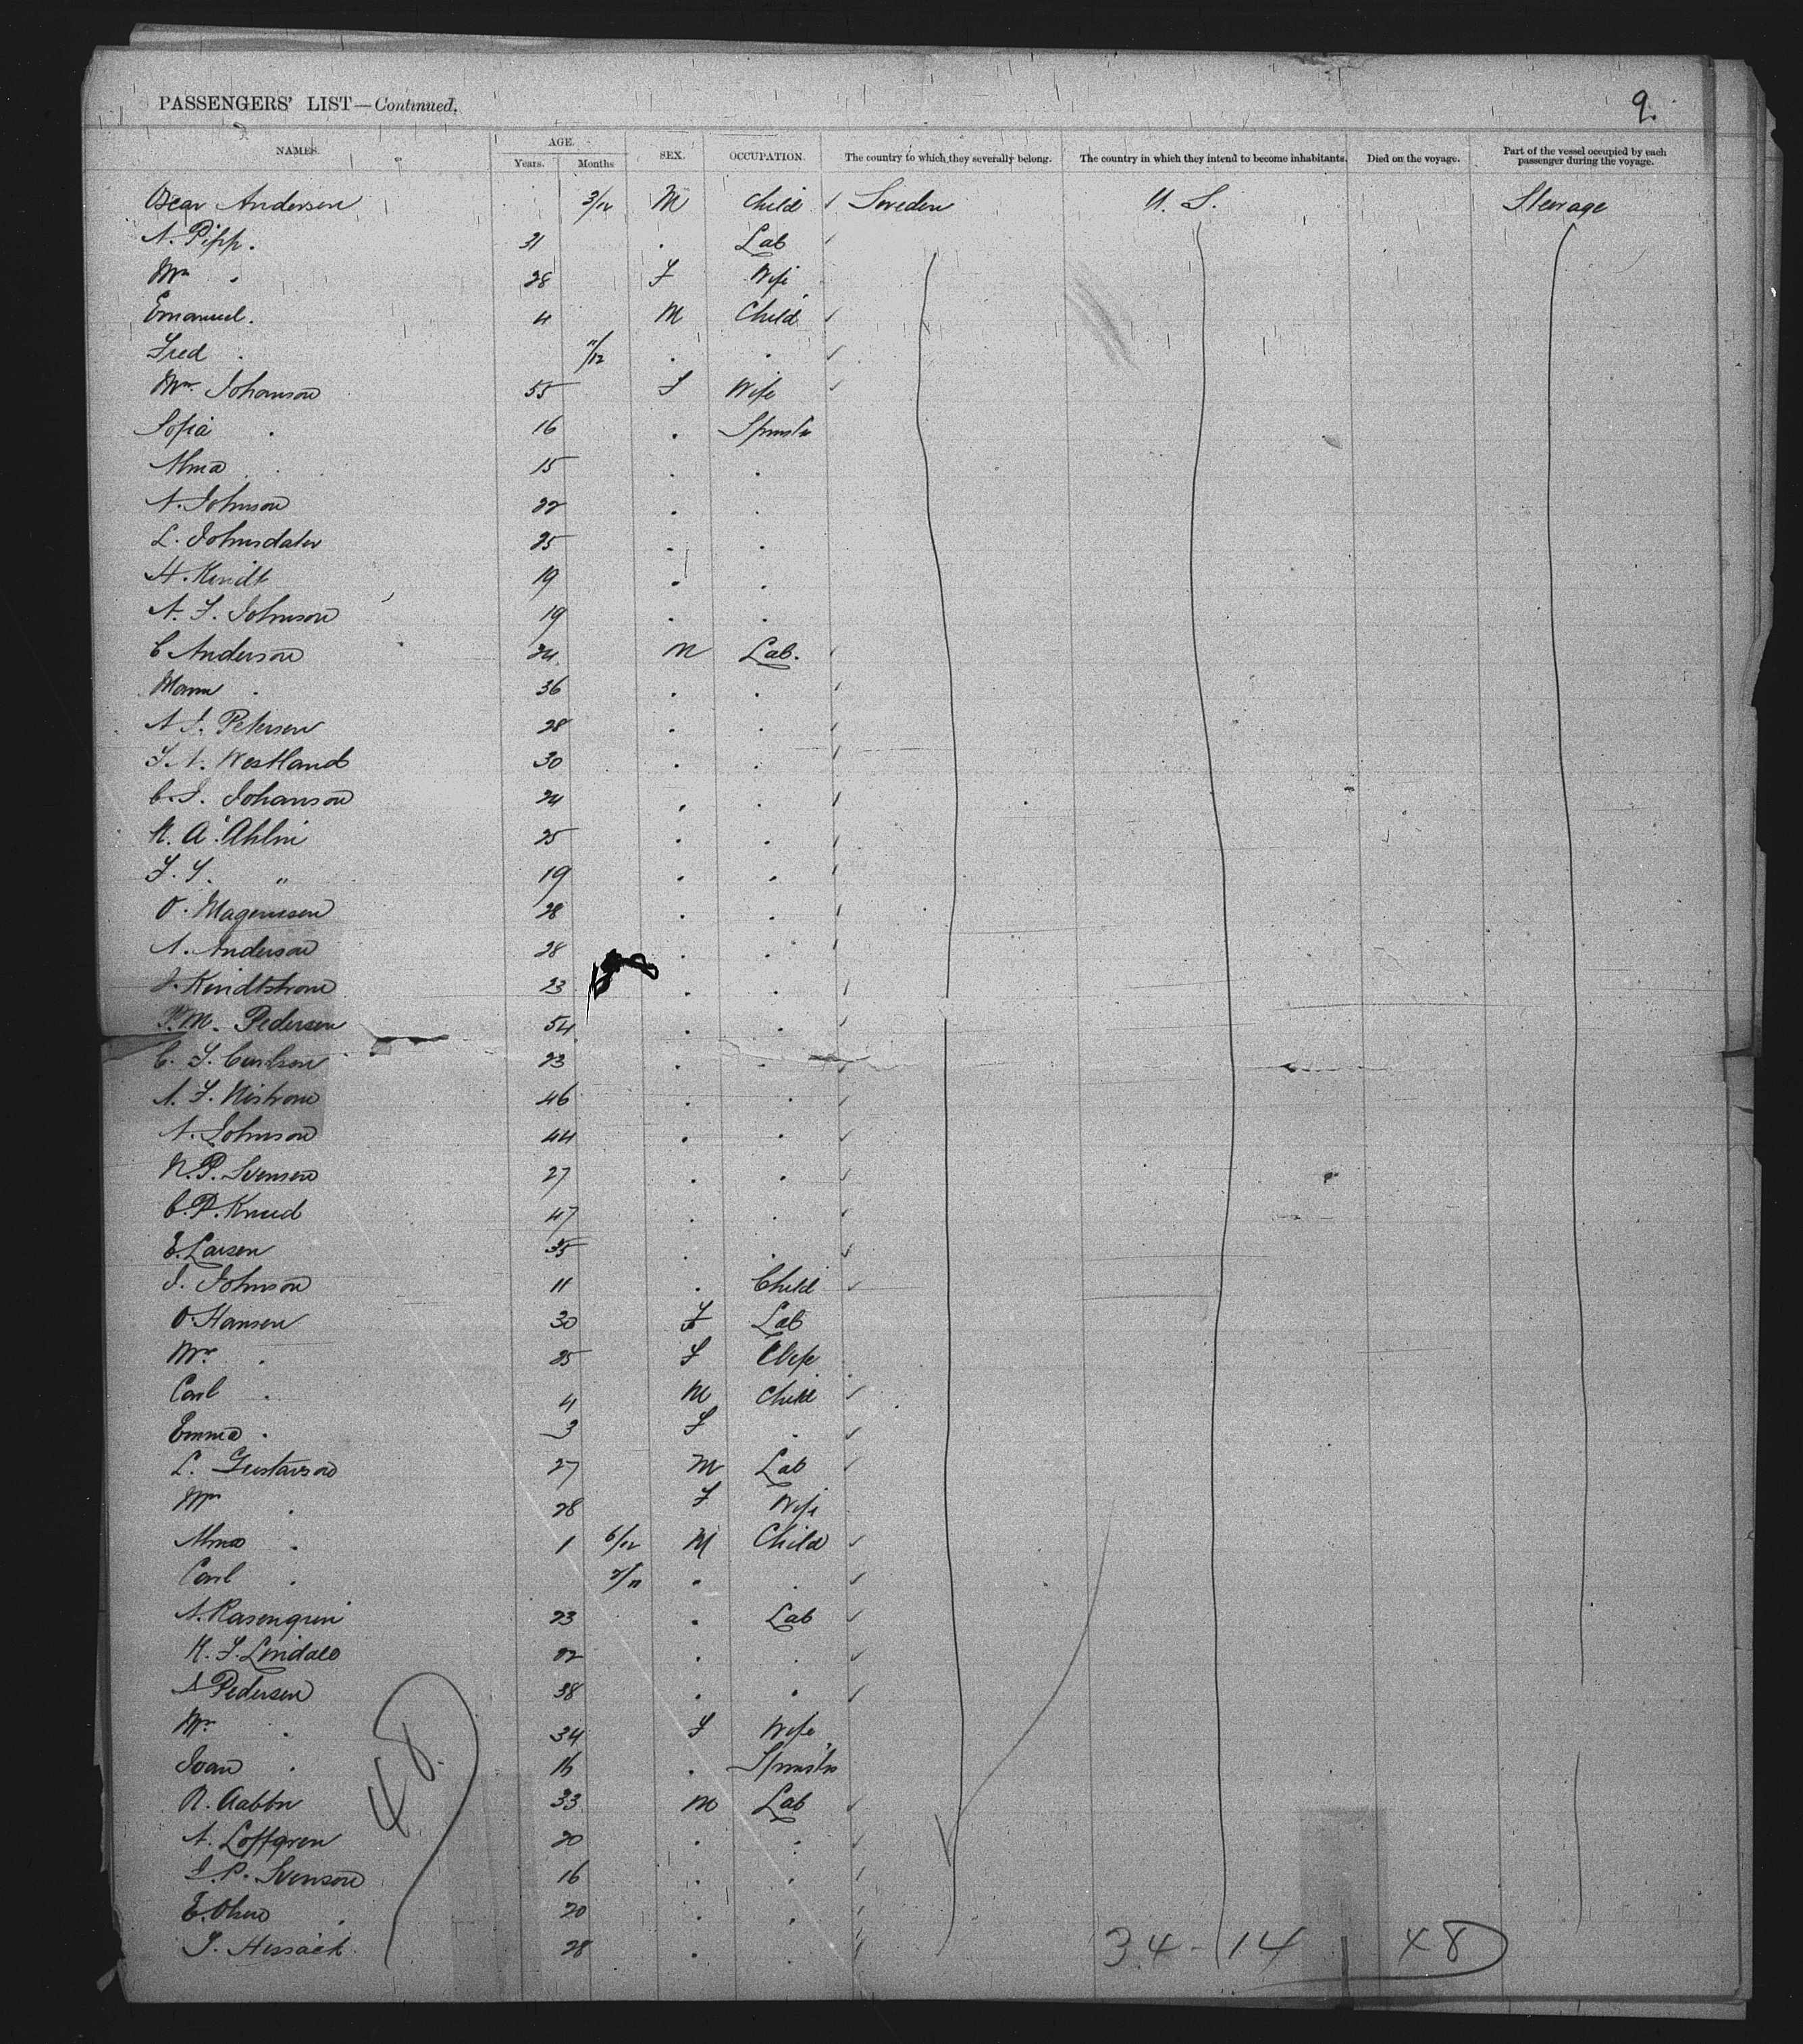 PASSENGERS' LIST—Continued. 9.
NAMES. AGE. Years. Months SEX. OCCUPATION. The country to which they severally belong. The country in which they intend to become inhabitants. Died on the voyage. Part of the vessel occupied by each passenger during the voyage.
Oscar Andersen 3/12 M Child Sweden U. S. Steerage
A. Pipp. 31 . Lab
Mrs . 28 F Wife
Emanuel . 4 M Child
Fred . 11/12 . .
Mrs. Johanson 55 F Wife
Sofia . 16 . Spinster
Alma . 15 . .
A. Johnson 22 . .
L. Johnsdater 25 . .
H. Kindt 19 . .
A. F. Johnson 19 . .
C Anderson 24 M Lab.
. 36 . .
A. J. Petersen 28 . .
F. A. Westland 30 . .
C. J. Johanson 24 . .
K. A. Ahlin 25 . .
F. Y. " 19 . .
O. Magnussen 28 . .
A. Anderson 28 . .
J. Kindtstrom 23 . .
P. M. Pedersen 54 . .
C. F. Carlson 23 . .
A. F. Nistrom 46 . .
A. Johnson 44 . .
N. P. Svensen 27 . .
C. P. Knud 47 . .
E. Larsen 35 . .
J. Johnson 11 . Child
O. Hansen 30 F Lab
Mrs. . 25 F Wife
Carl . 4 M Child
Emma . 3 F .
L. Gustavson 27 M Lab
Mrs . 28 F Wife
Alma . 1 6/12 M Child
Carl . " .
A. Rasengren 23 . Lab
K. F. Lindale 22 . .
Pedersen 38 . .
Mrs. . 34 F Wife
Joan . 16 . Spinster
N. Aabtn 33 M Lab
A. Loffgren 20 . .
J. P. Svenson 16 . .
E. Olsen 20 . .
Hessack 28 . .
48
34 - 14 48